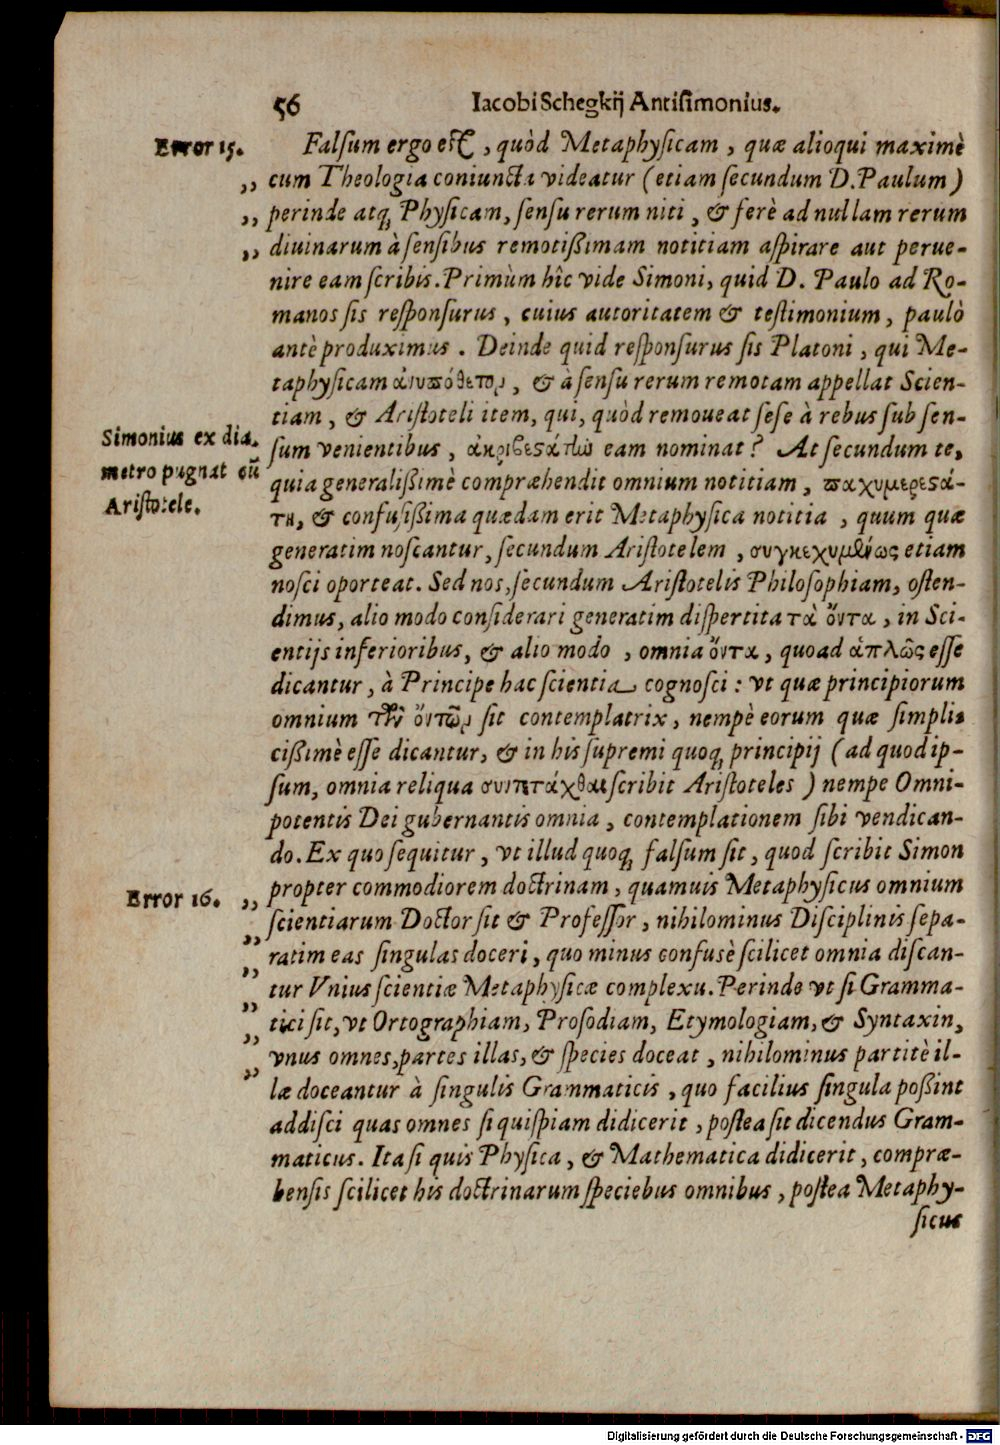 56 Iacobi Schegkij Antisimonius.
Error 15. Falsum ergo est, quòd Metaphysicam, quæ alioqui maximè
,, cum Theologia coniuncta videatur (etiam secundum D. Paulum)
,, perinde atq; Physicam, sensu rerum niti, & ferè ad nullam rerum
,, diuinarum à sensibus remotißimam notitiam aspirare aut perue-
nire eam scribis. Primùm hîc vide Simoni, quid D. Paulo ad Ro-
manos sis responsurus, cuius autoritatem & testimonium, paulò
antè produximus. Deinde quid responsurus sis Platoni, qui Me-
taphysicam ἀνυπόθετον, & à sensu rerum remotam appellat Scien-
tiam, & Aristoteli item, qui, quòd remoueat sese à rebus sub sen-
Simonius ex dia.
metro pugnat cũ
Aristotele.
sum venientibus, ἀκριβεςάτlω eam nominat? At secundum te,
quia generalißimè compræhendit omnium notitiam, παχυμερεςά-
τη, & confusißima quædam erit Metaphysica notitia, quum quæ
generatim noscantur, secundum Aristotelem, συγκεχυμθύως etiam
nosci oporteat. Sed nos, secundum Aristotelis Philosophiam, osten-
dimus, alio modo considerari generatim dispertita τὰ ὄντα, in Sci-
entijs inferioribus, & alio modo, omnia ὄντα, quoad ἁπλῶς esse
dicantur, à Principe hac scientia cognosci: vt quæ principiorum
omnium τῶν ὄντων sit contemplatrix, nempè eorum quæ simpli-
cißimè esse dicantur, & in his supremi quoq; principij (ad quod ip-
sum, omnia reliqua συντετάχθαι scribit Aristoteles) nempe Omni-
potentis Dei gubernantis omnia, contemplationem sibi vendican-
do. Ex quo sequitur, vt illud quoq; falsum sit, quod scribit Simon
Error 16. ,, propter commodiorem doctrinam, quamuis Metaphysicus omnium
,, scientiarum Doctor sit & Professor, nihilominus Disciplinis sepa-
,, ratim eas singulas doceri, quo minus confusè scilicet omnia discan-
,, tur Vnius scientiæ Metaphysicæ complexu. Perinde vt si Gramma-
,, tici sit, vt Ortographiam, Prosodiam, Etymologiam, & Syntaxin,
,, vnus omnes, partes illas, & species doceat, nihilominus partitè il-
læ doceantur à singulis Grammaticis, quo facilius singula poßint
addisci quas omnes si quispiam didicerit, postea sit dicendus Gram-
maticus. Ita si quis Physica, & Mathematica didicerit, compræ-
hensis scilicet his doctrinarum speciebus omnibus, postea Metaphy-
sicus
Digitalisierung gefördert durch die Deutsche Forschungsgemeinschaft - DFG